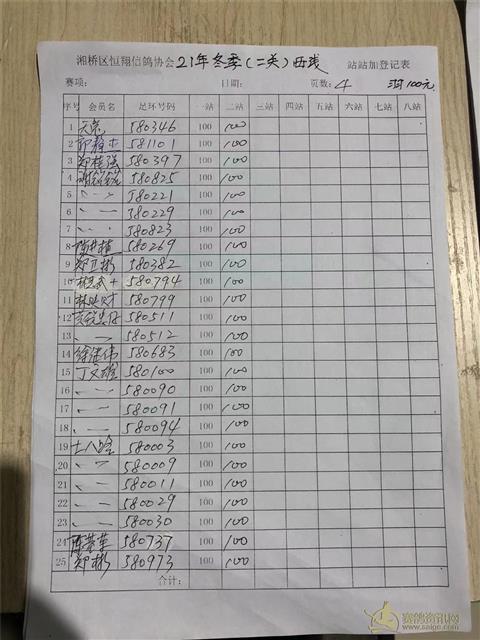 湘桥区恒翔信鸽协会21年冬季(二关)西线 站站加登记表
赛项: 日期: 页数: 4 100元
序号 会员名 足环号码 一站 二站 三站 四站 五站 六站 七站 八站
1 580346 100 100
2 581101 100 100
3 580397 100 100
4 580825 100 100
5 〃 580221 100 100
6 〃 580229 100 100
7 〃 580823 100 100
8 580269 100 100
9 郑卫彬 580382 100 100
10 580794 100 100
11 580799 100 100
12 580511 100 100
13 〃 580512 100 100
14 580683 100 100
15 580100 100 100
16 〃 580090 100 100
17 〃 580091 100 100
18 〃 580094 100 100
19 580003 100 100
20 〃 580009 100 100
21 〃 580011 100 100
22 〃 580029 100 100
23 〃 580030 100 100
24 580737 100 100
25 郑彬 580973 100 100
合计:
赛鸽资讯网
www.saige.com